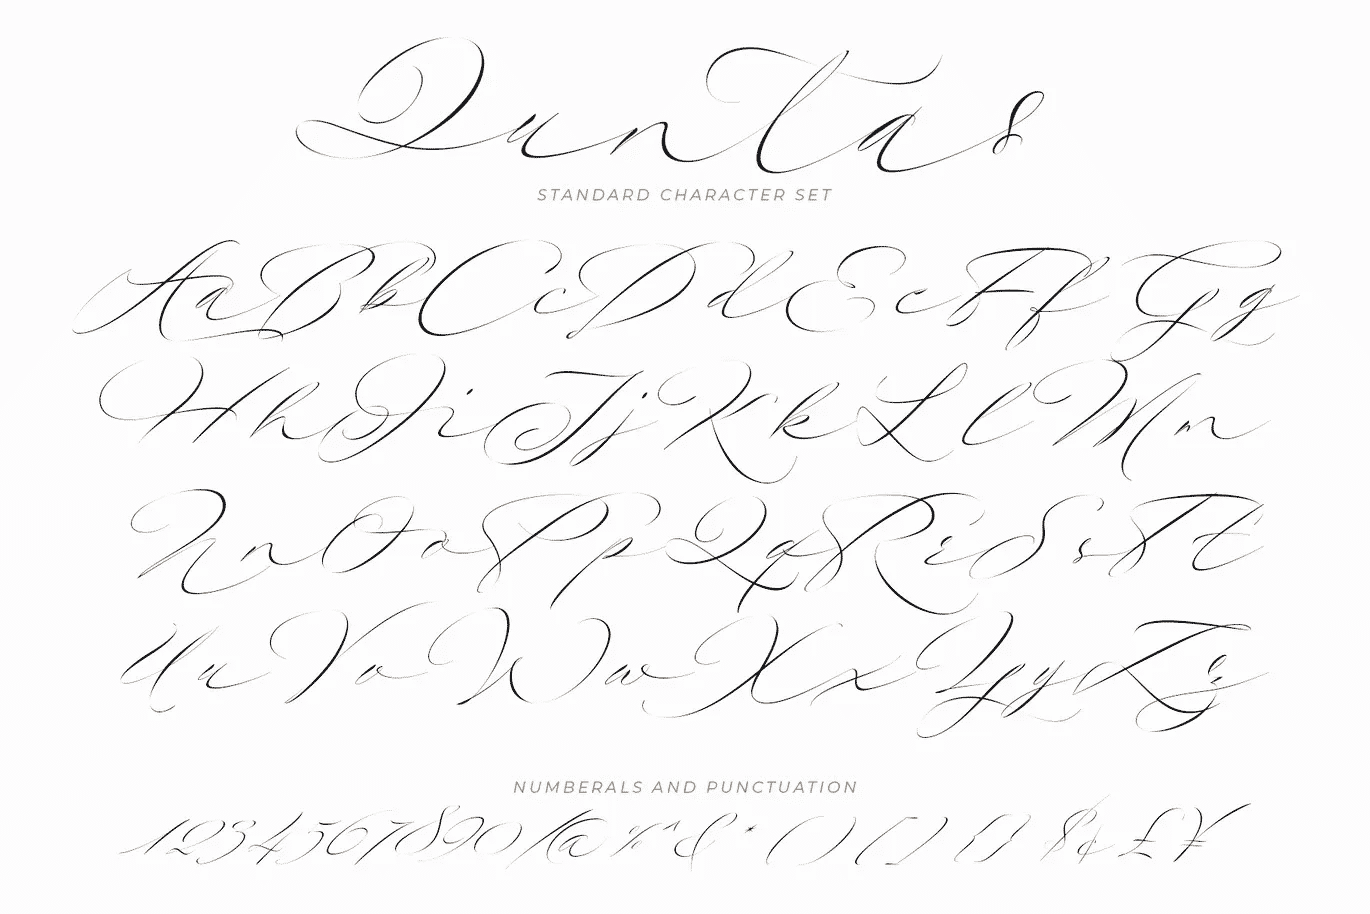 Quntas
STANDARD CHARACTER SET
Aa Bb Cc Dd Ee Ff Gg
Hh Ii Jj Kk Ll Mm
Nn Oo Pp Qq Rr Ss Tt
Uu Vv Ww Xx Yy Zz
NUMBERALS AND PUNCTUATION
1234567890/@%^&*()[]{}$¢£¥